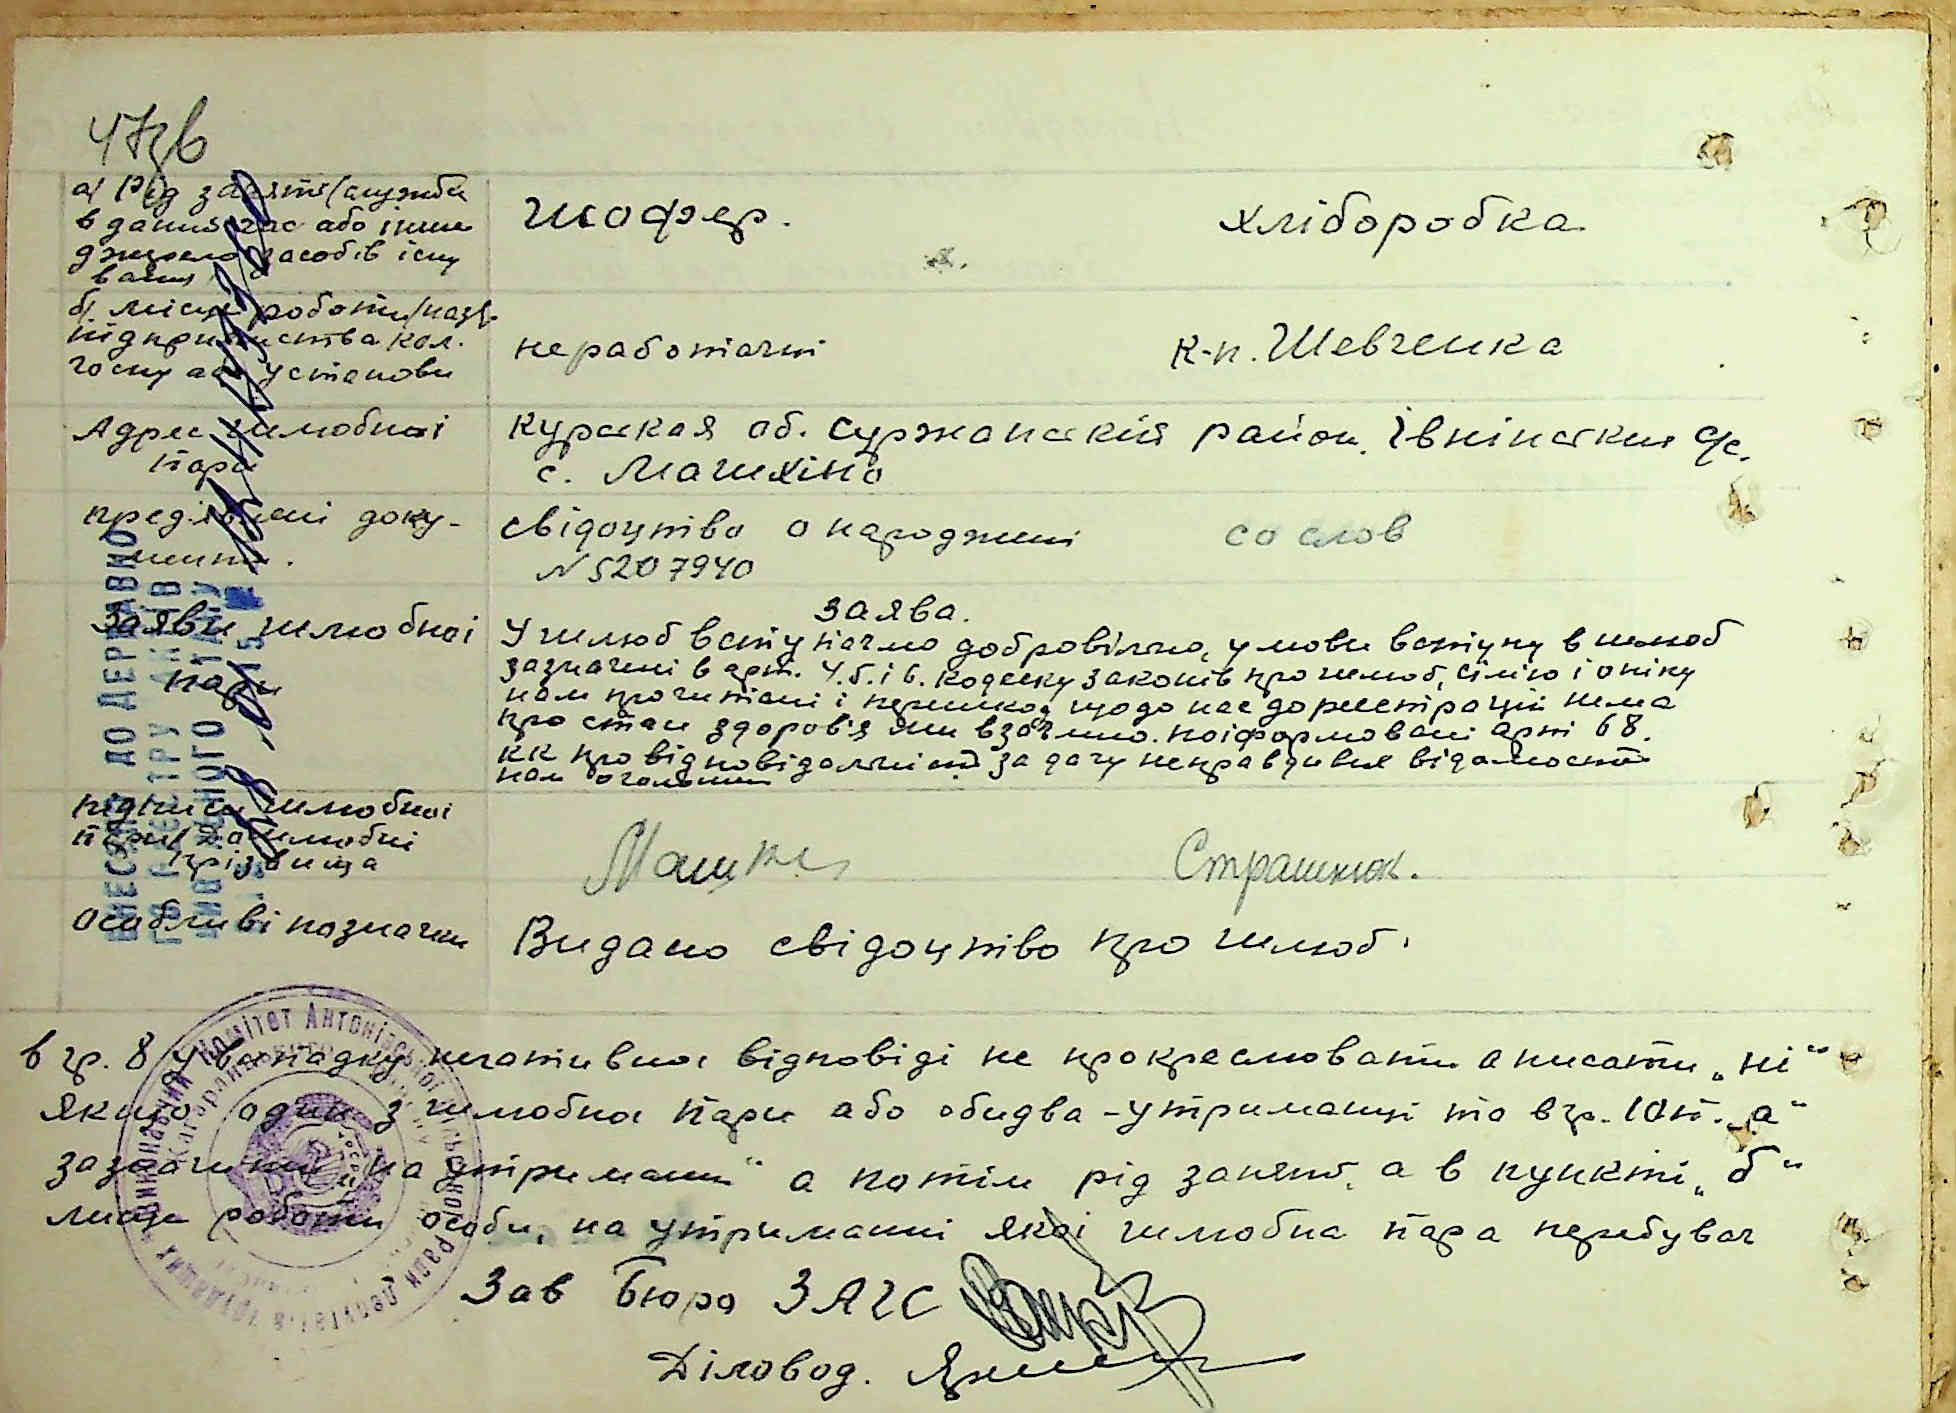 47зв
а) Рід занять (служби
в даний час або інше
джерело засобів існу
вання
шофер.
хліборобка
б) місце роботи (назв.
підприємства кол.
госпу або установи
неработаючі
к-п. Шевченка
Адрес шлюбноі
пари
Курская об. Суржанскій район. Івнінския с/с.
с. Машкіно
предявлені доку-
менти.
свідоцтво о народжені
N 5207940
со слов
Заяви шлюбноі
пари
Заява.
У шлюб вступаємо добровільно, умови вступу в шлюб
зазначені в арт. 4.5. і 6. кодексу законів про шлюб, сім'ю і опіку
нам прочитані і перешкод щодо нас до реєстрації нема
про стан здоров'я ми взаємно поінформовані арт 68.
КК про відповідальність за дачу неправдивих відомостей
нам оголошен
підписи шлюбноі
пари/дошлюбні
прізвища
Страшнюк.
Особливі позначки
Видано свідоцтво про шлюб.
в гр. 8 у випадку негативноі відповіді не прокреслювати а писати „ні“
якщо один з шлюбноі пари або обидва - утриманці то в гр. 10 п. „а“
зазначити „на утриманні“ а потім рід занять, а в пункті „б“
місце роботи особи, на утриманні якоі шлюбна пара перебуває
Зав Бюро ЗАГС
Діловод.
ВНЕСЕНО ДО ДЕРЖАВНО
ГО РЕЄСТРУ АКТІВ
ЦИВІЛЬНОГО СТАНУ
ВИКОНАВЧИЙ КОМІТЕТ АНТОНІВСЬКОЇ СІЛЬСЬКОЇ РАДИ ДЕПУТАТІВ ТРУДЯЩИХ